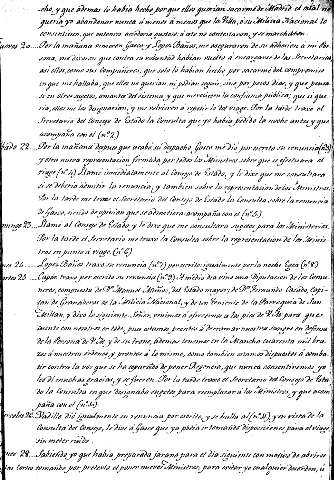 cho, y que ademas lo habia hecho por que ellos querian sacarme de Madrid el cual no
queria yo abandonar nunca á menos á menos que la Villa, y su Milicia Nacional lo
consintiesen, que entonces accederia gustoso á ello no contentaron, y se marcharon
Por la mañana vinieron Gasco y Lopez Baños, me aseguraron de su adhesion á mi Per
sona, me dixeron que contra su voluntad habian vuelto á encargarse de las Secretarias
asi ellos, como sus compañeros, que solo lo habian hecho por sacarme del compromiso
en que me hallaba, que ellos no querian ni podian seguir, sino por pocos dias, y que pensa
se en otros sugetos, amantes del sistema y que mereciesen la confianza publica; que si que
ria, ellos me los designarian, y me volvieron á repetir lo del viage. Por la tarde traxo el
Secretario del Consejo de Estado la Consulta que yo habia pedido la noche antes y que
acompaña con el (nº 2)
Por la mañana despues que acabó su despacho, Gasco me dió por escrito su renuncia
y otra nueva representacion firmada por todos los Ministros sobre que se efectuara el
viage (nº 4) Llamé inmediatamente al Consejo de Estado, y le dixe que me consultara
si se deberia admitir la renuncia, y tambien sobre la representacion de los Ministros
Por la tarde me traxo el Secretario del Consejo de Estado la Consulta sobre la renuncia
de Gasco, siendo de opinion que se admitiera acompaña con el (nº 5)
Llamé al Consejo de Estado y le dixe que me consultara sugetos para los Ministerios
Por la tarde el Secretario me traxo la Consulta sobre la representacion de los Minis
tros en punto á viage (nº 6)
Lopez Baños traxo su renuncia (nº 7) por escrito igualmente por la noche Egea (nº 8)
Capaz traxo por escrito su renuncia (nº 9) Al medio dia vino una Diputacion de los Comu
neros, compuesta de Dn. Manuel Núñez, del Estado mayor; de Dn. Fernando Casado, Capi
tan de Granaderos de la Milicia Nacional, y de un teniente de la Parroquia de San
Millan, y dixo lo siguiente. Señor, venimos á ofrecernos á los pies de V.M. para que
cuente con nosotros en todo, pues estamos prontos á derramar nuestra sangre en defensa
de la Persona de V.M. y de su trono, ademas tenemos en la Mancha cuarenta mil bra
zos á nuestras órdenes, y prontos á lo mismo, como tambien estamos dispuestos á comba
tir contra la voz que se ha esparcido de poner Regencia, que nunca consentiremos, yo
les dí muchas gracias, y se fueron. Por la tarde traxo el Secretario del Consejo de Esta
do la Consulta en que designaba sugetos para reemplazar á los Ministros, y que acom
paña con el (nº 10)
Vadillo dió igualmente su renuncia por escrito, y se halla al (nº 11), y en vista de la
Consulta del Consejo, le dixe á Gasco que ya podia ir tomando disposiciones para el viage
sin meter ruido
Sabiendo yo que habia preparada jarana para el dia siguiente con motivo de abrirse
las Cortes tomando por pretexto el poner nuevos Ministros, para evitar yo cualquier desorden, si